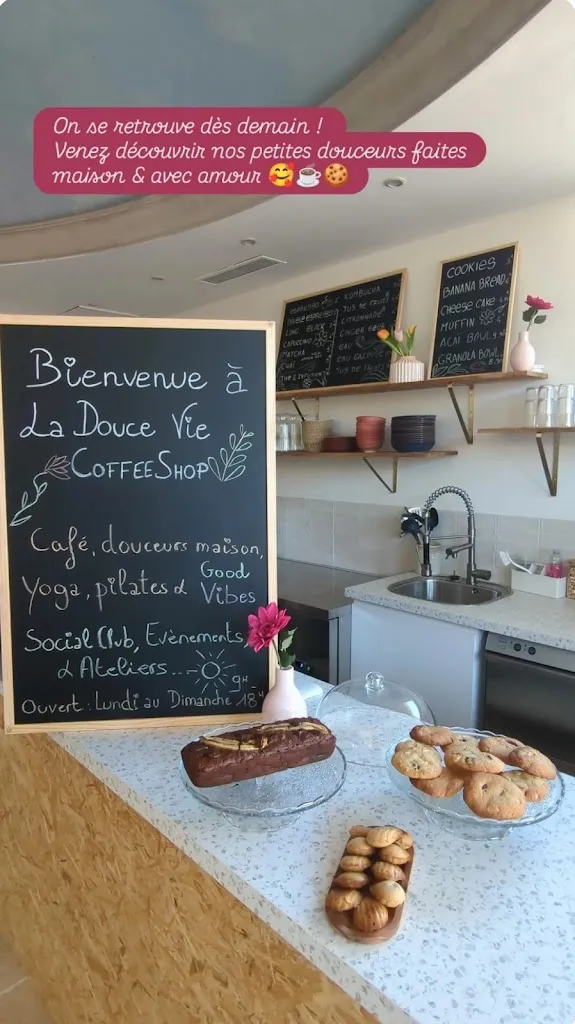 On se retrouve dès demain !
Venez découvrir nos petites douceurs faites
maison & avec amour 🥰☕🍪
Bienvenue à
La Douce Vie
CoffeeShop
Café, douceurs maison,
Yoga, pilates & Good Vibes
Social Club, Evènements,
& Ateliers...
Ouvert : Lundi au Dimanche 9H 18H
ESPRESSO
DOUBLE ESPRESSO
LONG BLACK
CAPUCCINO
MATCHA
CHAI
KOMBUCHA
JUS DE FRUIT
CITRONNADE
GINGER
EAU
EAU GAZEUSE
COOKIES
BANANA BREAD
CHEESE CAKE
MUFFIN
ACAI BOWL
GRANOLA BOWL